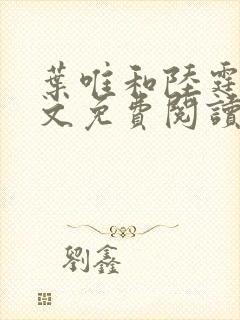 葉唯和陸霆
文免費閱讀
劉鑫